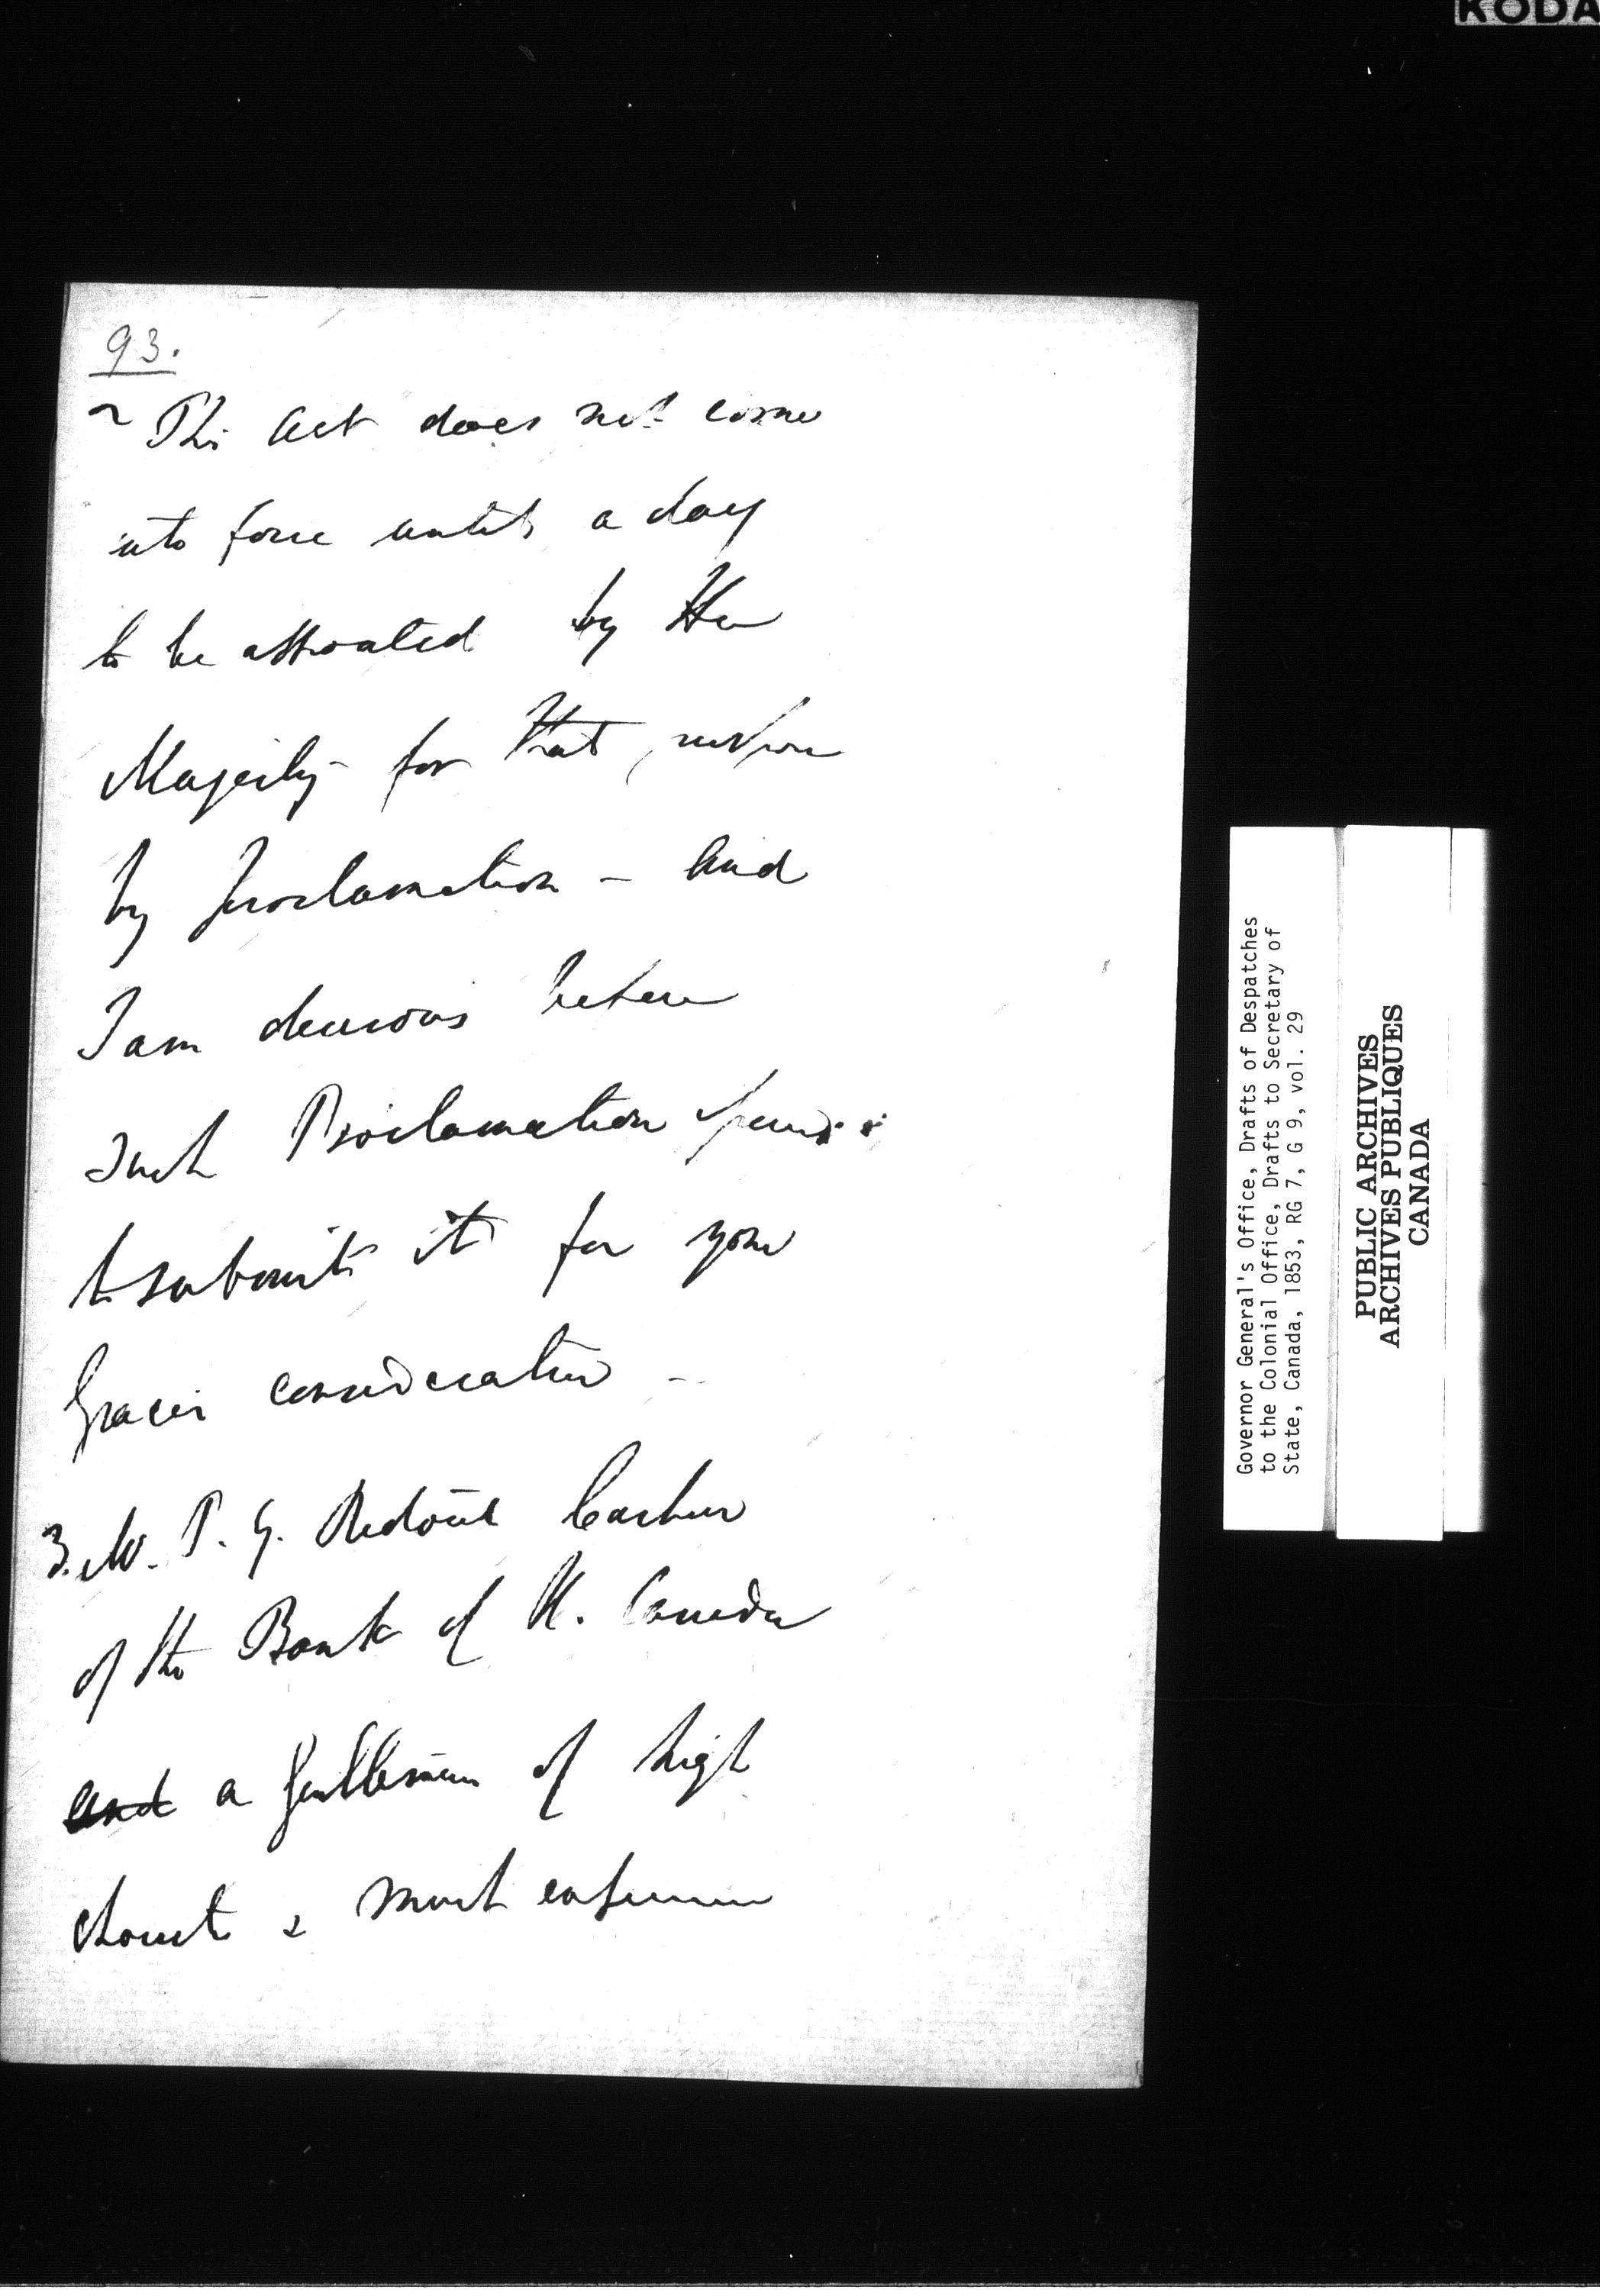 KODA
93.
2 This Act does not come
into force until a day
to be appointed by Her
Majesty for that purpose
by proclamation - And
I am desirous before
such Proclamation
to submit it for your
Graces consideration -
3. Mr. T. G. Ridout Cashier
of the Bank of U. Canada
and a gentleman of high
& much
Governor General's Office, Drafts of Despatches
to the Colonial Office, Drafts to Secretary of
State, Canada, 1853, RG 7, G 9, vol. 29
PUBLIC ARCHIVES
ARCHIVES PUBLIQUES
CANADA